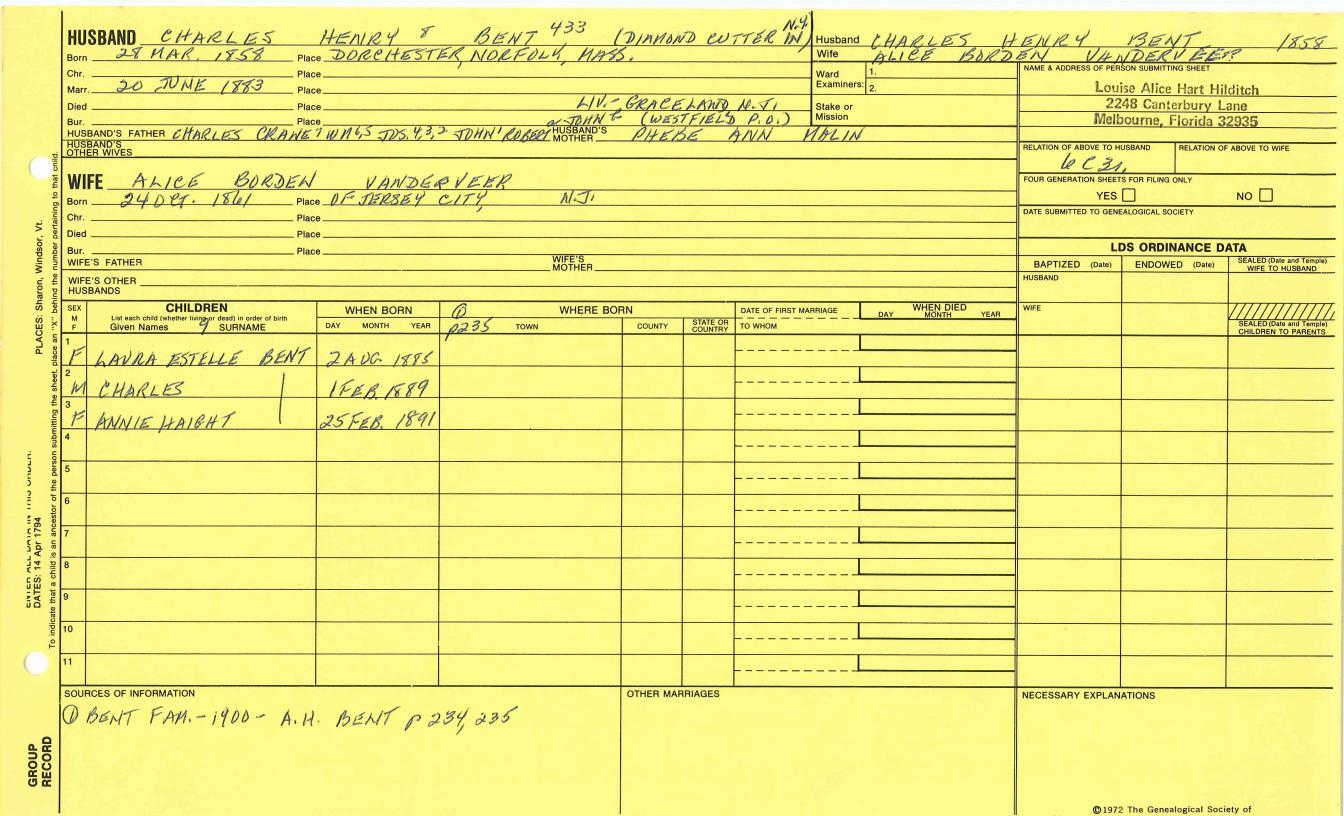 HUSBAND CHARLES HENRY 8 BENT 433 (DIAMOND CUTTER IN N.Y.)
Born 28 MAR. 1858 Place DORCHESTER, NORFOLK, MASS.
Chr. Place
Marr. 20 JUNE 1883 Place
Died Place LIV.- GRACELAND N.J.
Bur. Place JOHN (WESTFIELD P.O.)
HUSBAND'S FATHER CHARLES CRANE 7 WM 6,5 JOS. 4,3,2 JOHN 1 ROBERT HUSBAND'S MOTHER PHEBE ANN MALIN
HUSBAND'S OTHER WIVES
Husband CHARLES HENRY BENT 1858
Wife ALICE BORDEN VANDERVEER
Ward Examiners: 1.
2.
Stake or Mission
NAME & ADDRESS OF PERSON SUBMITTING SHEET
Louise Alice Hart Hilditch
2248 Canterbury Lane
Melbourne, Florida 32935
RELATION OF ABOVE TO HUSBAND RELATION OF ABOVE TO WIFE
6C3r.
FOUR GENERATION SHEETS FOR FILING ONLY
YES NO
DATE SUBMITTED TO GENEALOGICAL SOCIETY
WIFE ALICE BORDEN VANDERVEER
Born 24 OCT. 1861 Place OF JERSEY CITY, N.J.
Chr. Place
Died Place
Bur. Place
WIFE'S FATHER WIFE'S MOTHER
WIFE'S OTHER HUSBANDS
LDS ORDINANCE DATA
BAPTIZED (Date) ENDOWED (Date) SEALED (Date and Temple) WIFE TO HUSBAND
HUSBAND
WIFE
SEALED (Date and Temple) CHILDREN TO PARENTS
SEX M F
CHILDREN
List each child (whether living or dead) in order of birth
Given Names 9 SURNAME
WHEN BORN
DAY MONTH YEAR
① p235
WHERE BORN
TOWN COUNTY STATE OR COUNTRY
DATE OF FIRST MARRIAGE
TO WHOM
WHEN DIED
DAY MONTH YEAR
1 F LAURA ESTELLE BENT 2 AUG 1885
2 M CHARLES | 1 FEB. 1889
3 F ANNIE HAIGHT | 25 FEB. 1891
4
5
6
7
8
9
10
11
SOURCES OF INFORMATION
① BENT FAM. - 1900 - A.H. BENT p 234, 235
OTHER MARRIAGES
NECESSARY EXPLANATIONS
©1972 The Genealogical Society of
GROUP RECORD
ENTER ALL DATA IN THIS ORDER:
DATES: 14 Apr 1794
PLACES: Sharon, Windsor, Vt.
To indicate that a child is an ancestor of the person submitting the sheet, place an "X" behind the number pertaining to that child.